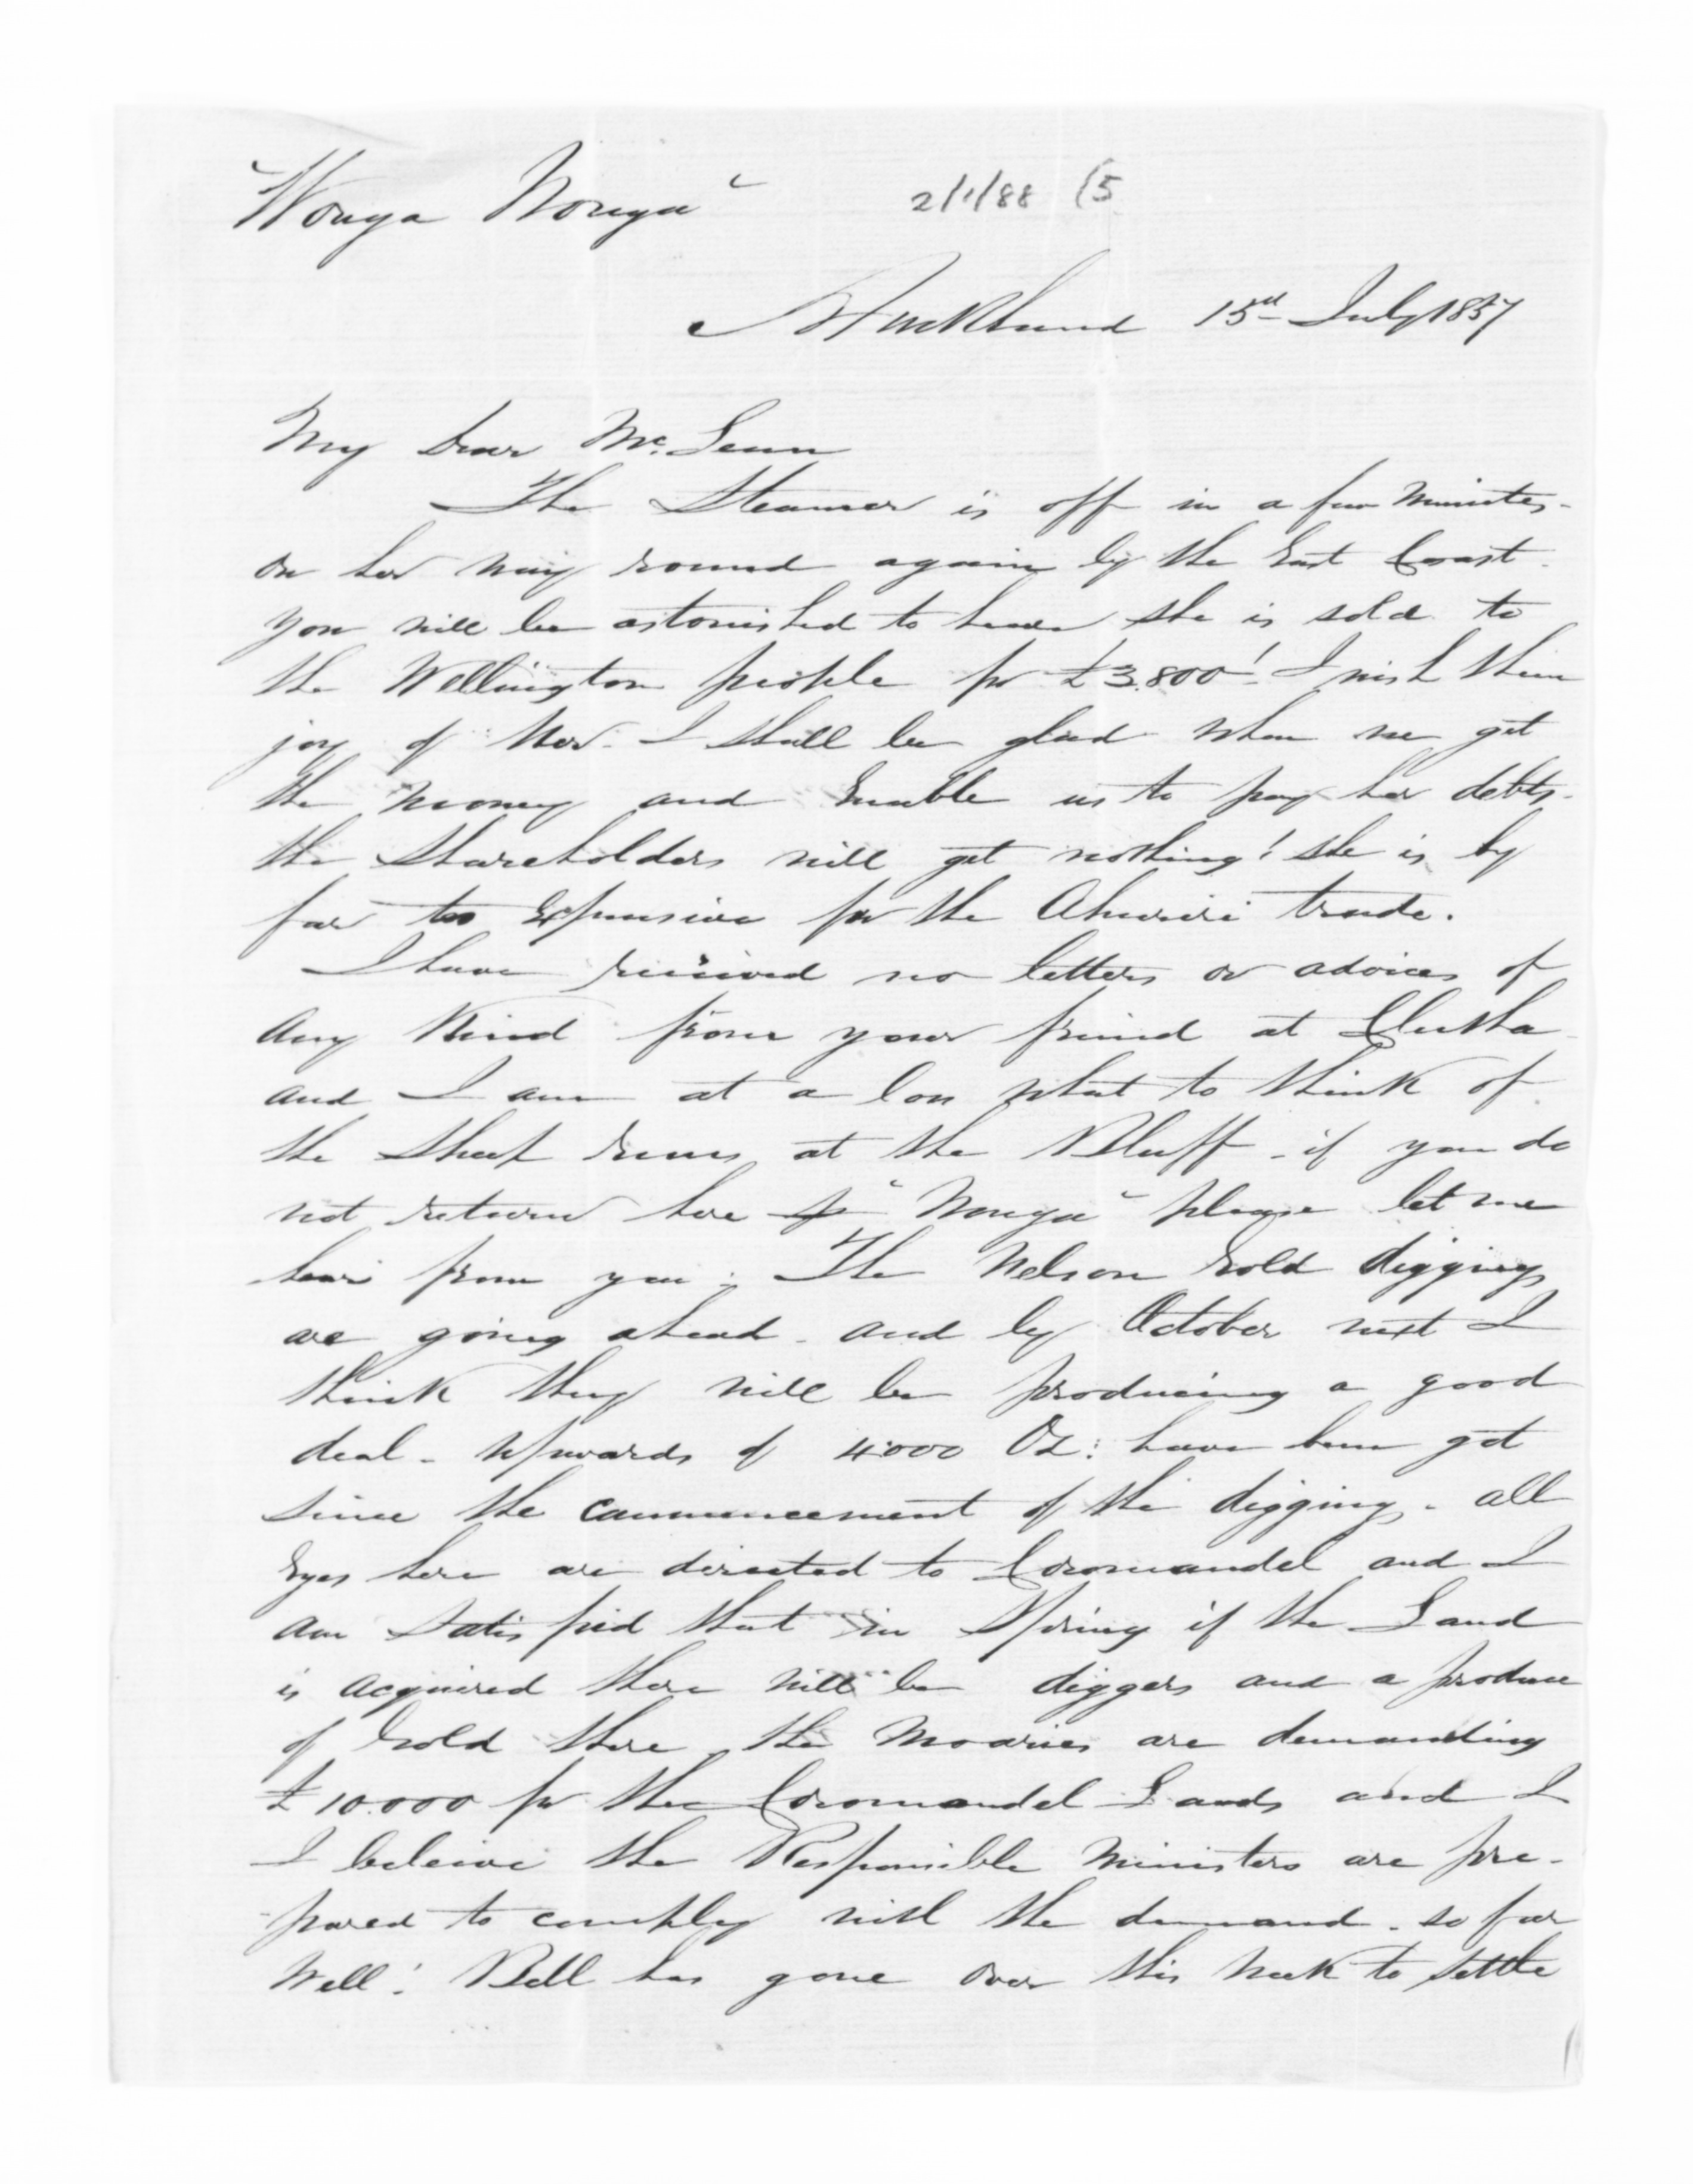 "Wonga Wonga"
2/1/88 (5
Auckland 15th July 1857
My Dear McLean
The Steamer is off in a few Minutes -
on her way round again by the East Coast.
you will be astonished to hear she is sold to
the Wellington people for £3.800! I wish them
joy of her. I shall be glad when we get
the money and Enable us to pay her debts.
the Shareholders will get nothing! she is by
far too Expensive for the Ahuriri trade.
I have received no letters or advices of
any Kind from your friend at Clutha
and I am at a loss what to think of
the Sheep runs at the Bluff - if you do
not return here p "Wonga" please let me
hear from you; The Nelson Gold diggings
are going ahead - and by October next I
think they will be producing a good
deal - Upwards of 4.000 Oz: have been got
since the commencement of the diggings. all
Eyes here are directed to Coromandel and I
am Satisfied that in Spring if the Land
is acquired there will be diggers and a produce
of Gold there the Moaries are demanding
£10.000 for the Coromandel Lands and I
I beleive the Responsible Ministers are pre-
pared to comply with the demand. so far
Well! Bell has gone over this Week to settle